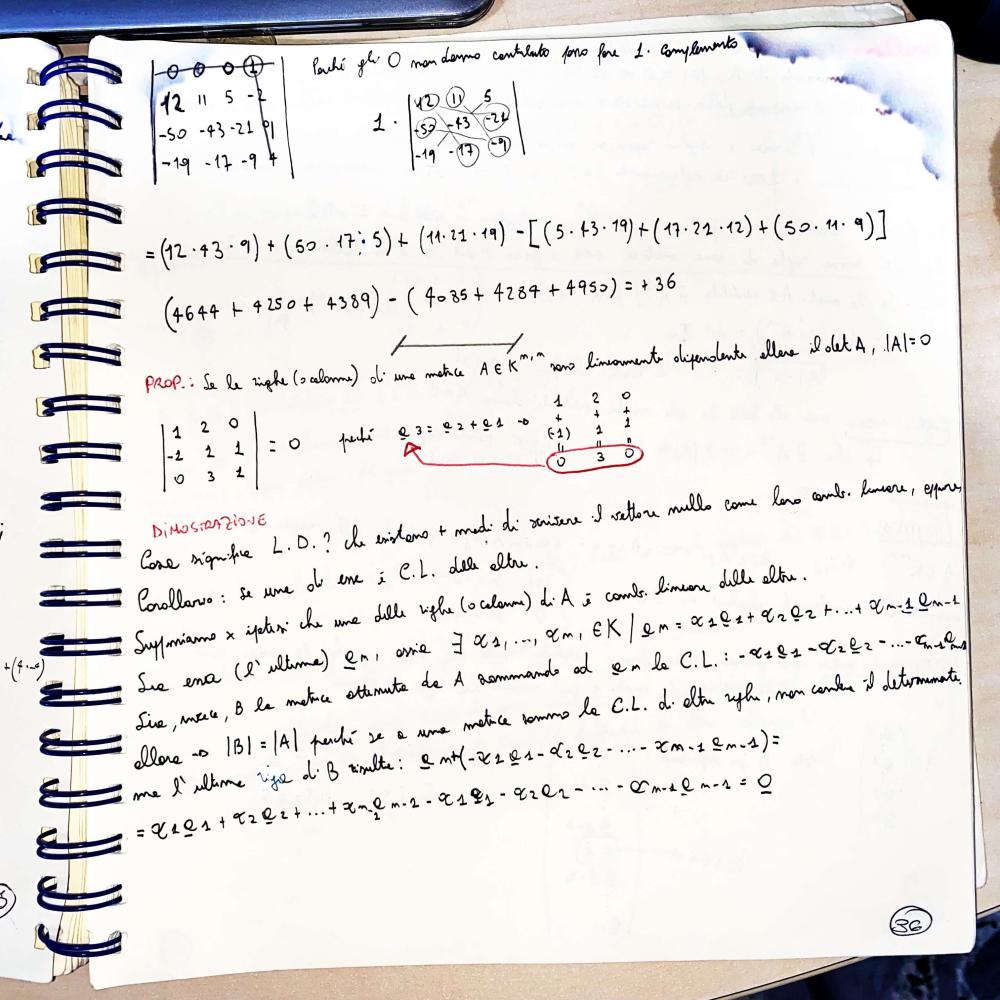 0 0 0 1 Poiché gli 0 non danno contributo sono fare 1. complemento
12 11 5 -2
-50 -43 -21 9
-19 -17 -9 4
1 · 12 11 5
-50 -43 -21
-19 -17 -9
= (12·43·9) + (50·17·5) + (11·21·19) - [(5·43·19) + (17·21·12) + (50·11·9)]
(4644 + 4250 + 4389) - (4085 + 4284 + 4950) = +36
PROP.: Se le righe (o colonne) di una matrice A ∈ K^m,n sono linearmente dipendenti allora il det A, |A| = 0
1 2 0
-1 1 1
0 3 1
= 0 perché a3 = a2 + a1 →
1 2 0
+ + +
(-1) 1 1
= = =
0 3 0
DIMOSTRAZIONE
Cosa significa L.D.? che esistono + modi di scrivere il vettore nullo come loro comb. lineare, oppure
Corollario: se una di esse è C.L. delle altre.
Supponiamo x ipotesi che una delle righe (o colonne) di A è comb. lineare delle altre.
Sia essa (l'ultima) an, ossia ∃ α1, ..., αm, ∈ K / am = α1a1 + α2a2 + ... + αm-1am-1
Sia, invece, B la matrice ottenuta da A sommando ad am la C.L.: -α1a1 - α2a2 - ... - αm-1am-1
allora → |B| = |A| perché se a una matrice sommo la C.L. di altre righe, non cambia il determinante.
ma l'ultima riga di B risulta: am + (-α1a1 - α2a2 - ... - αm-1am-1) =
= α1a1 + α2a2 + ... + αm-1am-1 - α1a1 - α2a2 - ... - αm-1am-1 = 0
36